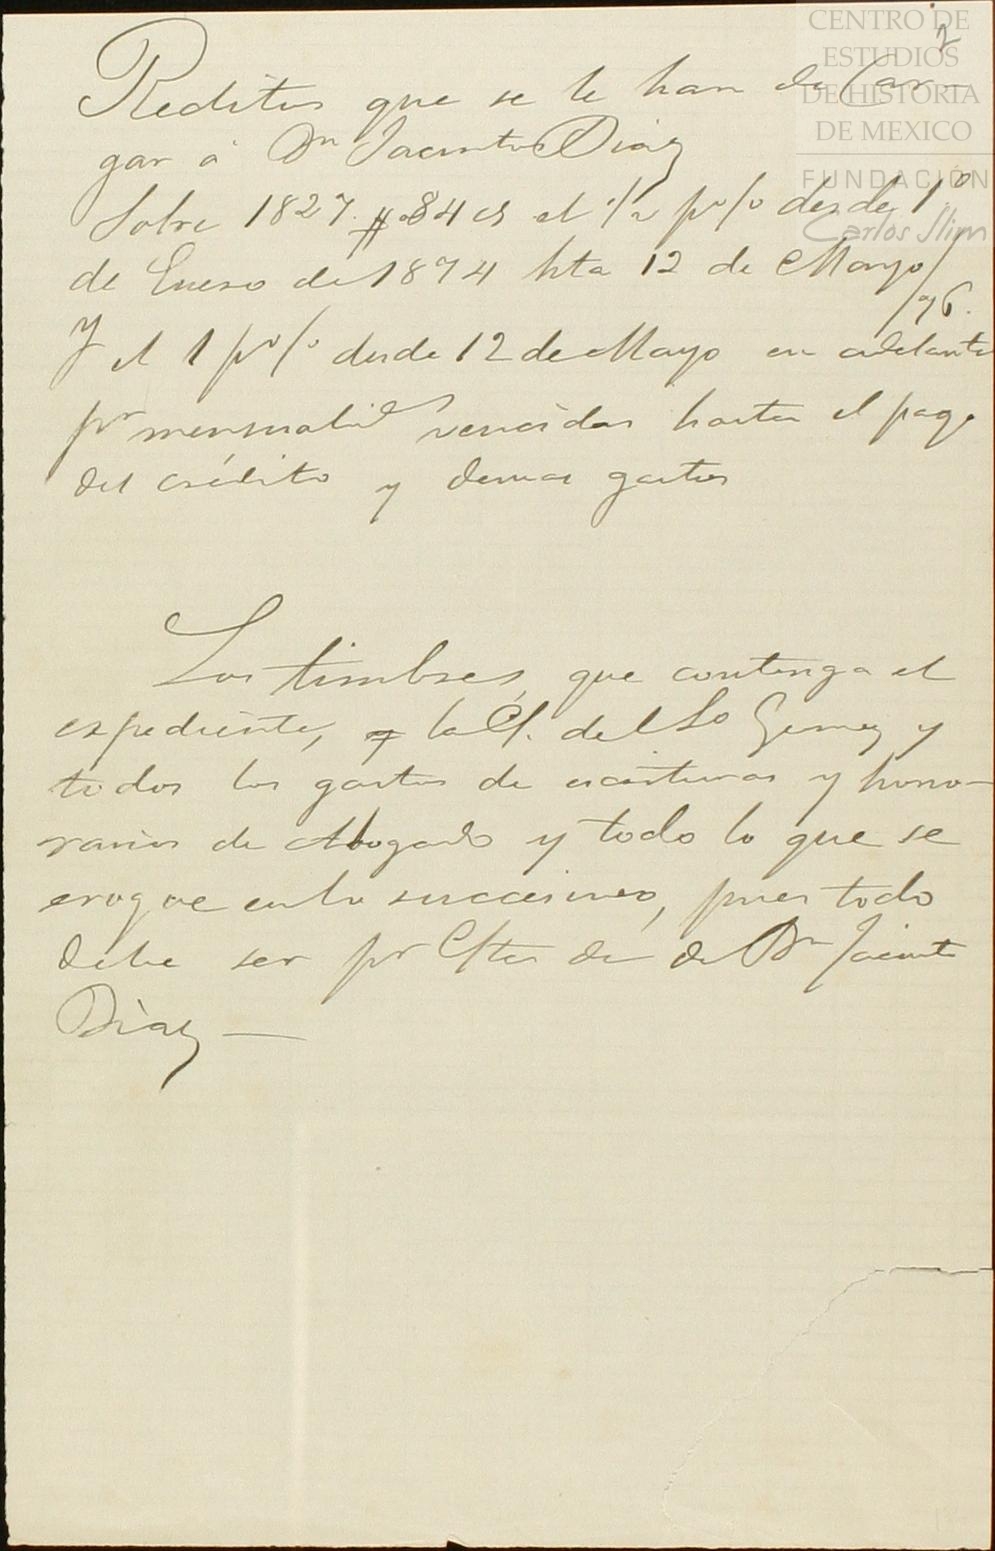 CENTRO DE
ESTUDIOS
DE HISTORIA
DE MEXICO
FUNDACIÓN
Carlos Slim
2
Reditos que se le han de Car-
gar á Dn Jacinto Diaz
Sobre 1827 $ 84 cs el 1/2 pº/º desde 1º
de Enero de 1874 hta 12 de Mayo/
/76.
Y el 1 pº/º desde 12 de Mayo en adelante
pr mensualids vencidas hasta el pago
del crédito y demas gastos
Los timbres, que contenga el
expediente, la del So Gomez y
todos los gastos de escrituras y hono-
rarios de Abogado y todo lo que se
erogue en lo succesivo, pues todo
debe ser pr Cta de de Dn Jacinto
Diaz —